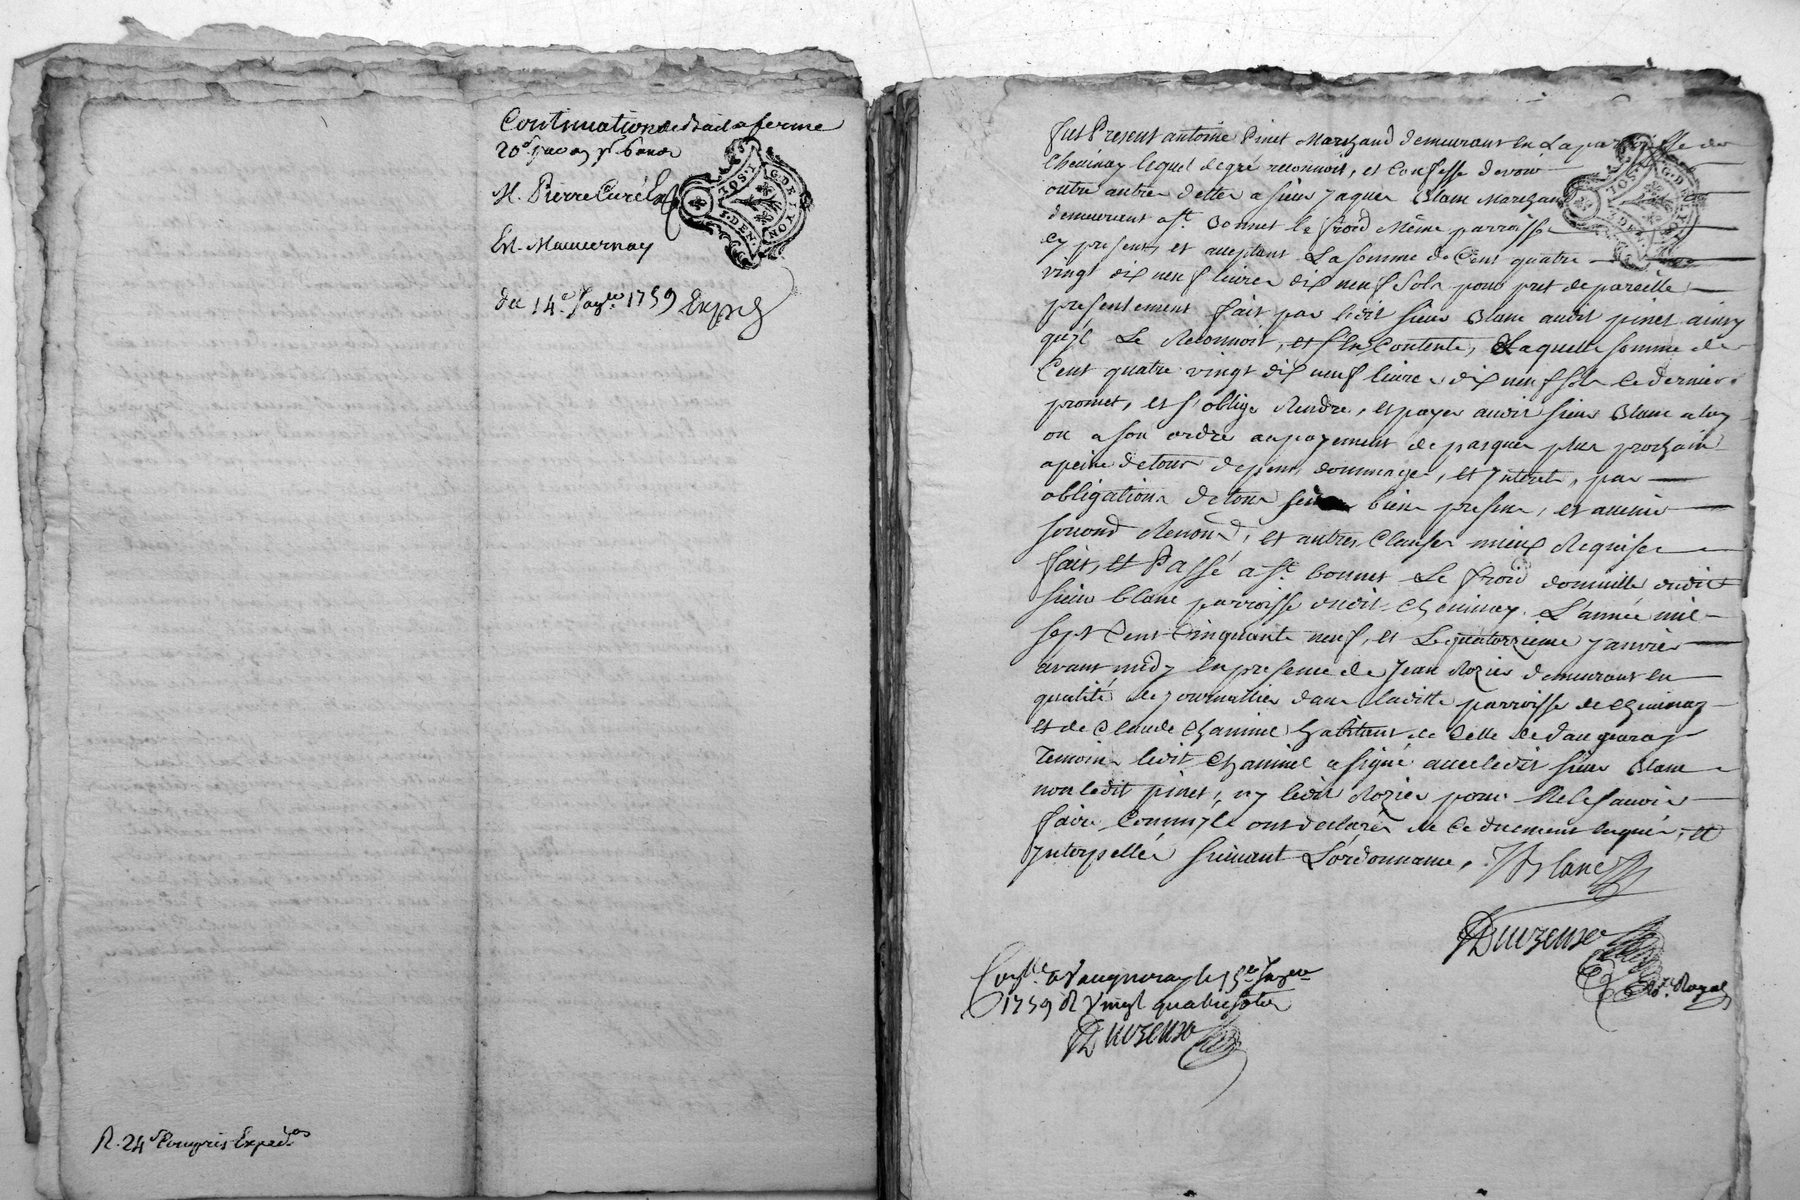 Continuation de bail a ferme
M. Pierre Curé
Et. Maucernay
du 14e. Janvr. 1759 Exp
1 SOL
G. DE LYON
R. 24s Compris Expedon
Fut Present antoine Pinet Marchand demeurant en La parroisse de
Cheminay lequel degré reconnoit, et Confesse devoir
outre autres dettes a sieur Jaques Blanc Marchand
demeurant a st. Bonnet le froid Même parroisse
cy present, et acceptant La somme de Cent quatre
vingt dix neuf livres dix neuf sols pour pret de pareille
presentement fait par ledit sieur Blanc audit pinet ainsy
qu'jl Le Reconnoit, et s'en Contente, Laquelle somme de
Cent quatre vingt dix neuf livres dix neuf sols ce dernier
promet, et s'oblige Rendre, et payer audit sieur Blanc a luy
ou a son ordre au payement de pasques plus prochain
a peine de tous depens, dommages, et Jnterets, par
obligation de tous ses biens presens, et avenir
soumond Renond, et autres Clauses mieux Requises
fait, et Passé a st. bonnet Le froid domicille dudit
sieur blanc parroisse dudit Cheminay. L'année mil
sept Cent Cinquante neuf, et Le quatorzieme janvier
avant midy En presence de Jean Rozier demeurant en
qualité de journallier dans laditte parroisse de Cheminay
et de Claude Chaminel habitant de Celle de Vaugneray
Temoins ledit Chaminel a signé avec ledit sieur Blanc
non ledit pinet, ny ledit Rozier pour Ne le sçavoir
faire Comm'jls ont declarés de Ce duement Enquis, et
Jnterpellés suivant L'ordonnance.
J Blanc
Duczenso
Nre. Royal
Conllé a Vaugneray le 15e. Janvr
1759 R Vingt quatre sols
Duczenso